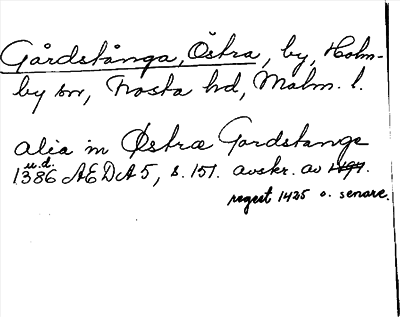 Gårdstånga, Östra, by, Holm-
by sn, Frosta hd, Malm. l.
alia in Østræ Gordstange
u.d.
1386 ÆDA 5, s. 151. avskr. av 1494.
regest 1425 o. senare.